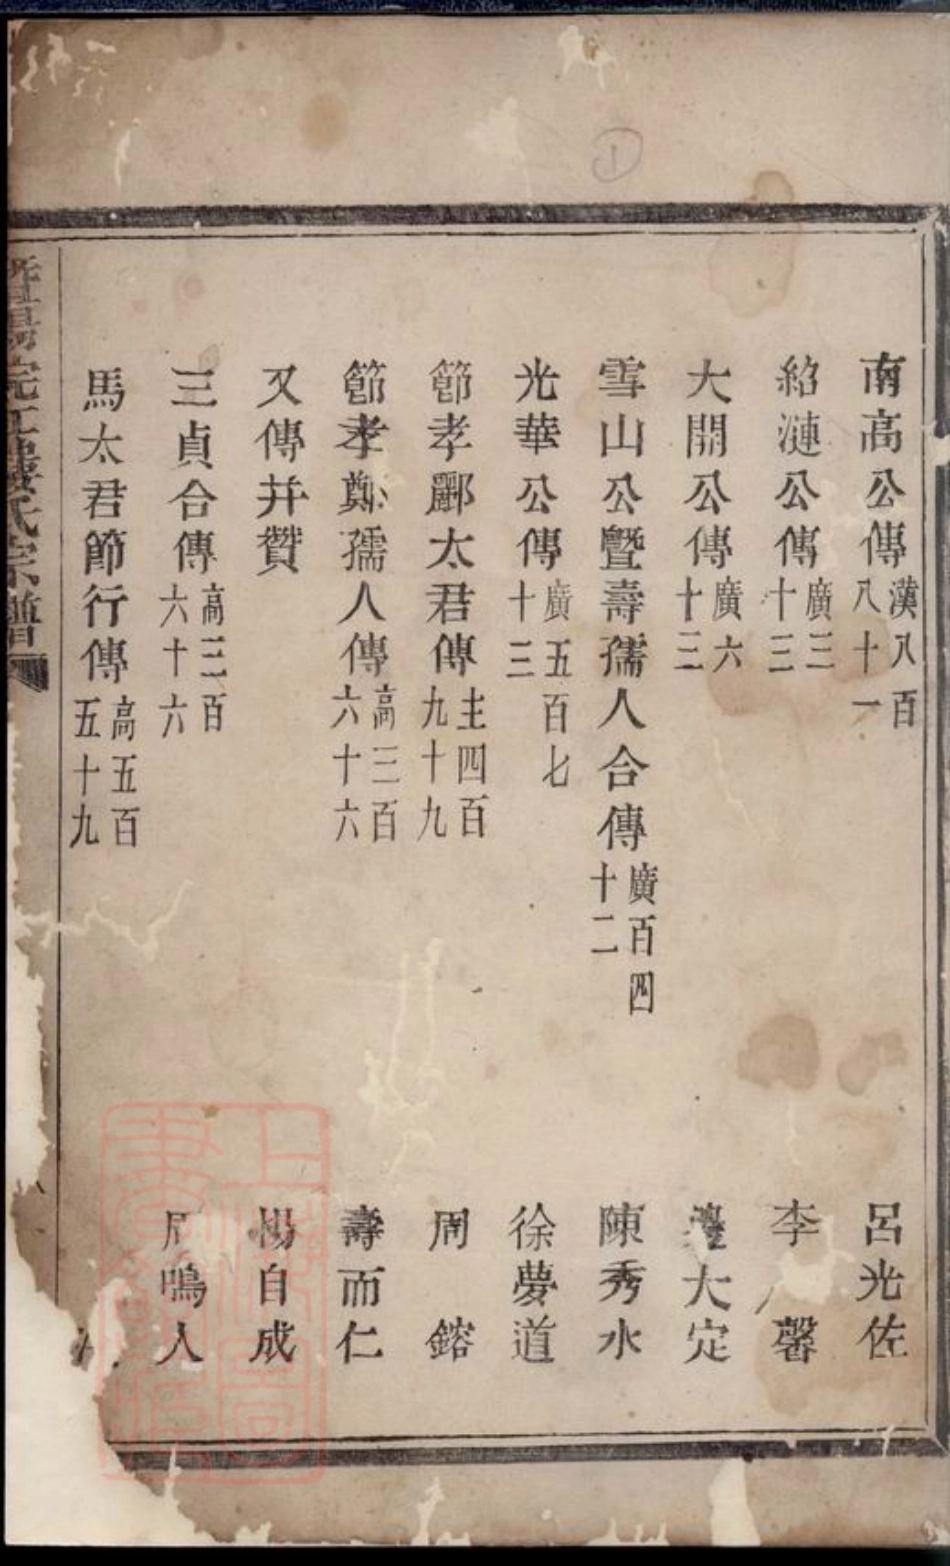 ①
南高公傳 漢八百八十一 呂光佐
紹漣公傳 廣三十三 李 馨
大開公傳 廣六十三 大定
雪山公暨壽孺人合傳 廣百四十二 陳秀水
光華公傳 廣五百七十三 徐夢道
節孝酈太君傳 主四百九十九 周 鎔
節孝鄭孺人傳 高三百六十六 壽而仁
又傳并贊 楊自成
三貞合傳 高三百六十六 周鳴人
馬太君節行傳 高五百五十九
暨陽浣江樓氏宗譜
上海圖書館藏